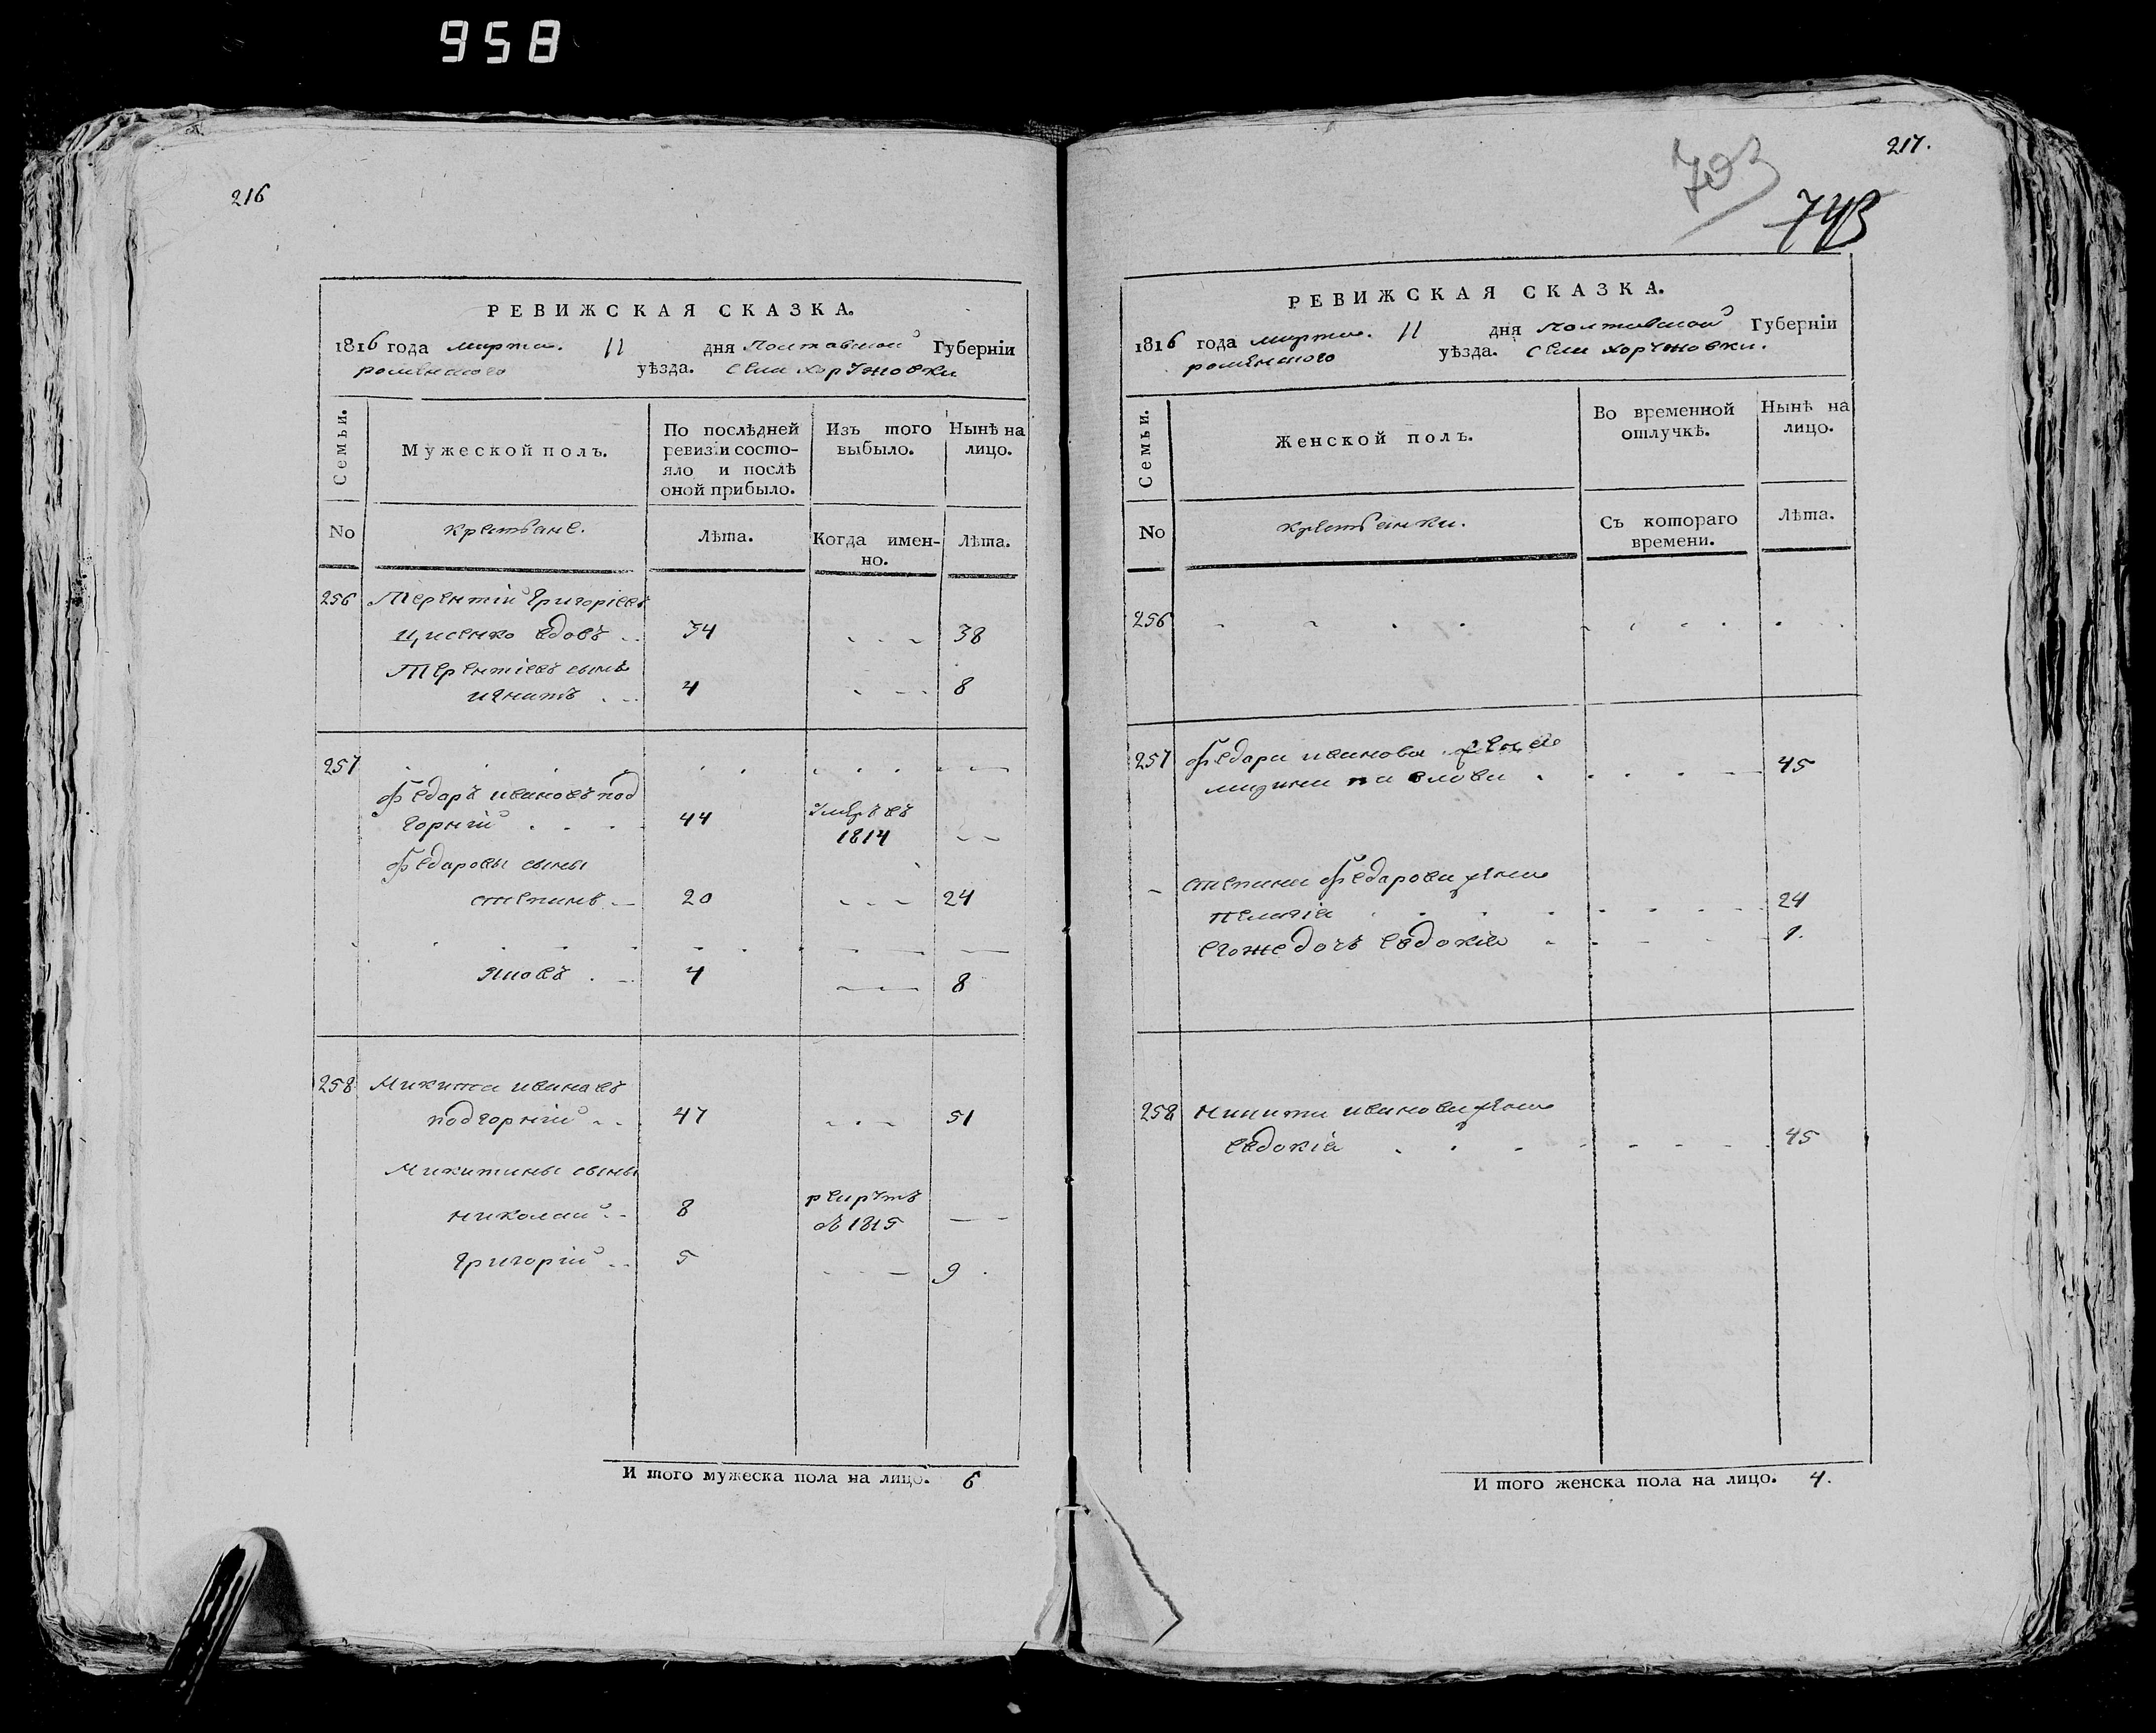 958
216
РЕВИЖСКАЯ СКАЗКА.
1816 года марта. 11 дня Полтавской Губерніи
роменского уѣзда. села хоружовки
Семьи.
Мужеской полъ.
По послѣдней ревизіи состо-
яло и послѣ
оной прибыло.
Изъ того
выбыло.
Нынѣ на
лицо.
No
крестьяне.
Лѣта.
Когда имен-
но.
Лѣта.
256 Терентій григоріевъ
вдовъ 34 38
Терентіевъ сынъ
игнатъ 4 8
257
Федаръ ивановъ под
горній 44 умеръ въ
1814
Федаровы сыны
степанъ 20 24
яковъ 4 8
258 Микита ивановъ
подгорній 47 51
Микитины сыны
николай 8 рекрутъ
в 1815
григорій 5 9
И того мужеска пола на лицо. 6
217.
703
743
РЕВИЖСКАЯ СКАЗКА.
1816 года марта. 11 дня Полтавской Губерніи
роменского уѣзда. села хоружовки.
Семьи.
Женской полъ.
Во временной
отлучкѣ.
Нынѣ на
лицо.
No
крестьянки.
Съ котораго
времени.
Лѣта.
256
257 Федара иванова жена
павлова 45
степана Федарова жена
пелагія 24
егоже дочь евдокія 1.
258 микиты иванова жена
евдокія 45
И того женска пола на лицо. 4.